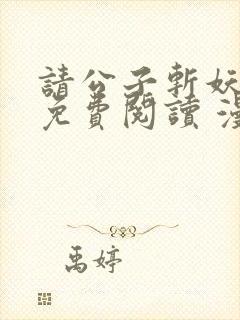 請公子斬妖
免費閱讀 漫
禹婷